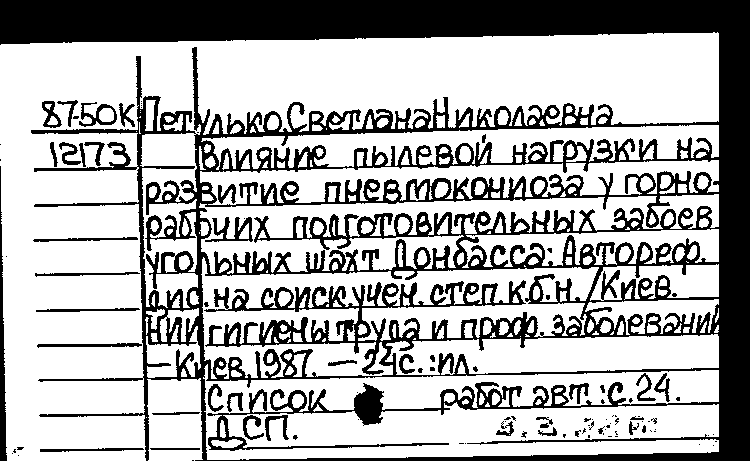 87-50К Петулько, Светлана Николаевна.
12173 Влияние пылевой нагрузки на
развитие пневмокониоза у горно-
рабочих подготовительных забоев
угольных шахт Донбасса: Автореф.
дис. на соиск. учен. степ. к.б.н. / Киев.
НИИ гигиены труда и проф. заболеваний
– Киев, 1987. – 24с. : ил.
Список работ авт. : с. 24.
ДСП.